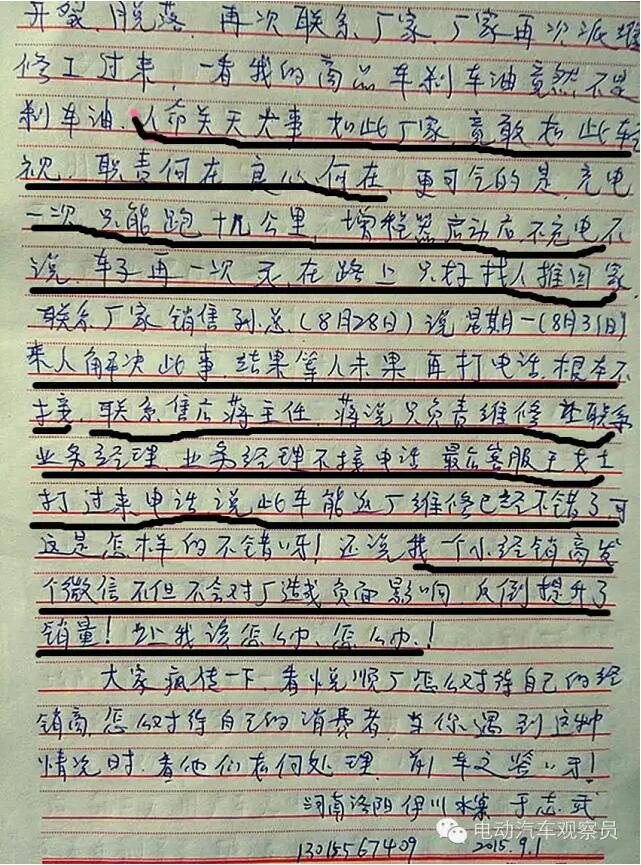 开裂、脱落、再次联系厂家、厂家再次派维
修工过来、一看我的商品车刹车油竟然不是
刹车油、人命关天大事 如此厂家、竟敢如此轻
视、职责何在 良心何在、更可气的是、充电
一次 只能跑十几公里、增程器启动后、不充电不
说、车子再一次 在路上 只好找人推回家、
联系厂家销售孙总、(8月28日)说星期一(8月31日)
来人解决此事、结果等人未果、再打电话、根本不
接、联系售后蒋主任、蒋说只负责维修 联系
业务经理、业务经理不接电话 最后客服王女士
打过来电话说此车能返厂维修已经不错了可
这是怎样的不错呀!还说我一个小经销商发
个微信不但不会对厂造成负面影响、反倒提升了
销量!让我该怎么办、怎么办!
大家疯传一下、看悦顺厂怎么对待自己的经
销商、怎么对待自己的消费者、当你遇到这种
情况时、看他们如何处理、前车之鉴呀!
河南洛阳伊川 水寨 于志武
13015567409 2015.9.1
电动汽车观察员